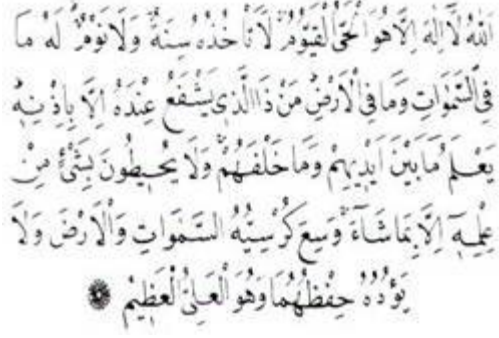 اَللّٰهُ لَٓا اِلٰهَ اِلَّا هُوَ الْحَىُّ الْقَيُّومُ لَا تَاْخُذُهُ سِنَةٌ وَلَا نَوْمٌ لَهُ مَا
فِى السَّمٰوَاتِ وَمَا فِى الْاَرْضِ مَنْ ذَا الَّذٖى يَشْفَعُ عِنْدَهُ اِلَّا بِاِذْنِهٖ
يَعْلَمُ مَا بَيْنَ اَيْدٖيهِمْ وَمَا خَلْفَهُمْ وَلَا يُحٖيطُونَ بِشَىْءٍ مِنْ
عِلْمِهٖٓ اِلَّا بِمَا شَٓاءَ وَسِعَ كُرْسِيُّهُ السَّمٰوَاتِ وَالْاَرْضَ وَلَا
يَؤُدُهُ حِفْظُهُمَا وَهُوَ الْعَلِىُّ الْعَظٖيمُ